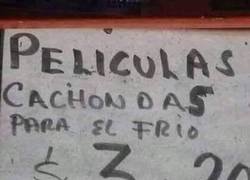 PELICULAS
CACHONDAS
PARA EL FRIO
$ 3